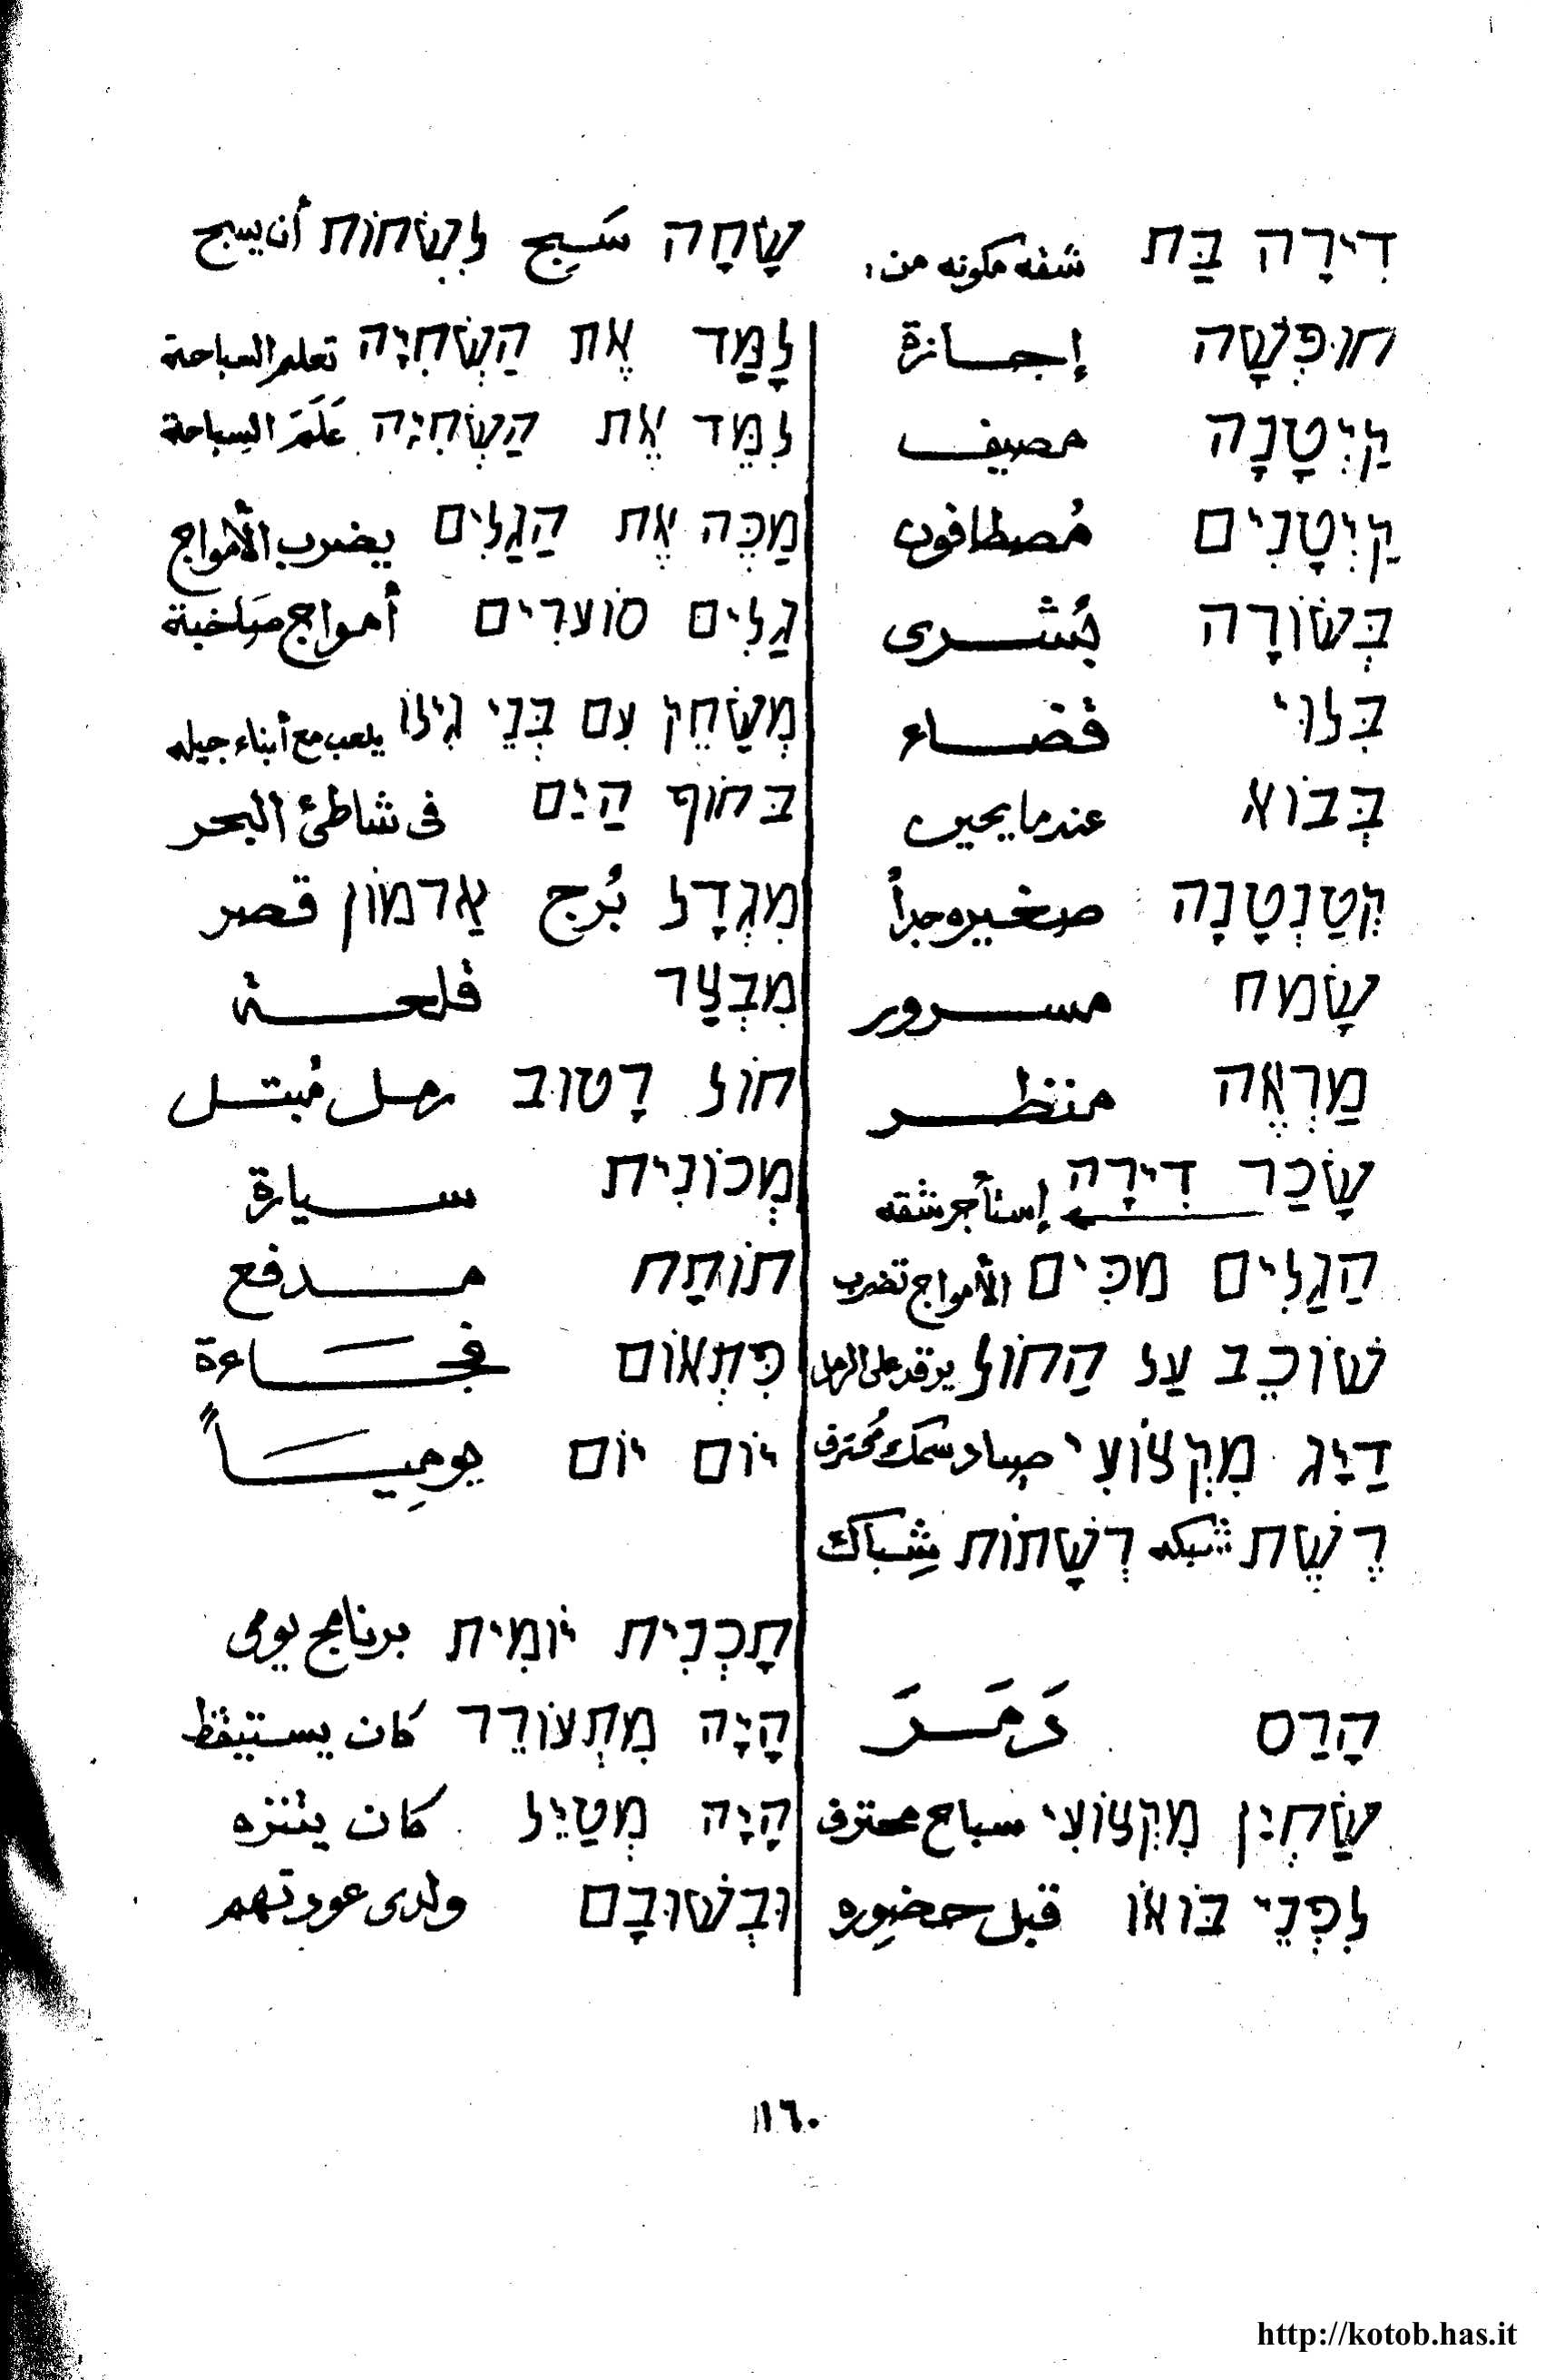 דִירָה בַּת شقه مكونه من :
חוּפְשָׁה إجازة
קַיְטָנָה مصيف
קַיְטָנִים مُصطافون
בְּשׂוֹרָה بُشرى
בִּלוּי قضاء
בְּבוֹא عندما يحين
קְטַנְטָנָה صغيره جداً
שָׂמח مسرور
מַרְאֶה منظر
שָׂכַר דִירָה إستأجر شقه
הַגַלִים מכִּים الأمواج تضرب
שׁוֹכֵב עַל הַחוֹל يرقد على الرمل
דַיָג מִקְצוֹעִי صياد سمك مُحترف
רֶשֶׁת شبكه רְשָׁתוֹת شِباك
הָרַס دَمَرَ
שַׂחְיָן מִקְצוֹעִי سباح محترف
לִפְנֵי בּוֹאוֹ قبل حضوره
שָׂחָה سَبِح לִשְׂחוֹת أن يسبح
לָמַד אֶת הַשְׂחִיָה تعلم السباحة
לִמֵד אֶת הַשְׂחִיָה عَلَمَ السباحة
מַכֶּה אֶת הַגַלִים يضرب الأمواج
גַלִים סוֹעֲרִים أمواج صَاخبة
מְשַׂחֵק עִם בְּנֵי גִילוֹ يلعب مع أبناء جيله
בּחוֹף הַיָם فى شاطئ البحر
מִגְדָל بُرج אַרמוֹן قصر
מִבְצָר قلعة
חוֹל רָטוּב رمل مُبتل
מְכוֹנִית سيارة
תוֹתָח مدفع
פִּתְאוֹם فجاءة
יוֹם יוֹם يومِياً
תָכְנִית יוֹמִית برنامج يومى
הָיָה מִתְעוֹרֵר كان يستيقظ
הָיָה מְטַיֵל كان يتنزه
וּבְשׁוּבָם ولدى عودتهم
١٦٠
http://kotob.has.it